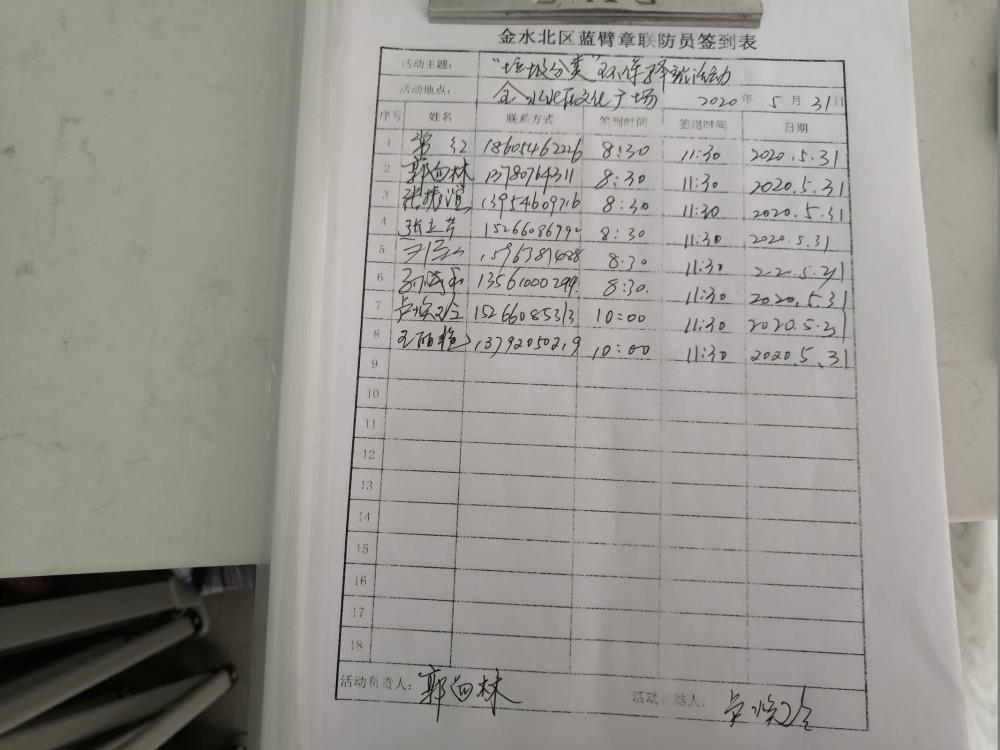 金水北区蓝臂章联防员签到表
活动主题： "垃圾分类"环保 活动
活动地点： 金水北区文化广场 2020年 5月 31日
序号 姓名 联系方式 签到时间 签退时间 日期
1 常红 18605462226 8:30 11:30 2020.5.31
2 郭 林 13780764311 8:30 11:30 2020.5.31
3 张振谊 13954609716 8:30 11:30 2020.5.31
4 张立芹 1526608679 8:30 11:30 2020.5.31
5 8:30 11:30
6 13561000299 8:30. 11:30 2020.5.31
7 15266085313 10:00 11:30 2020.5.31
8 王丽艳 13792050219 10:00 11:30 2020.5.31
9
10
11
12
13
14
15
16
17
18
活动负责人： 郭 林 活动总结人：